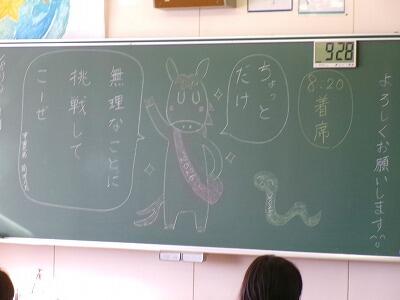 よろしくお願いします^^
8:20
着席
928
ちょっと
だけ
無理なことに
挑戦して
こーぜ
2026